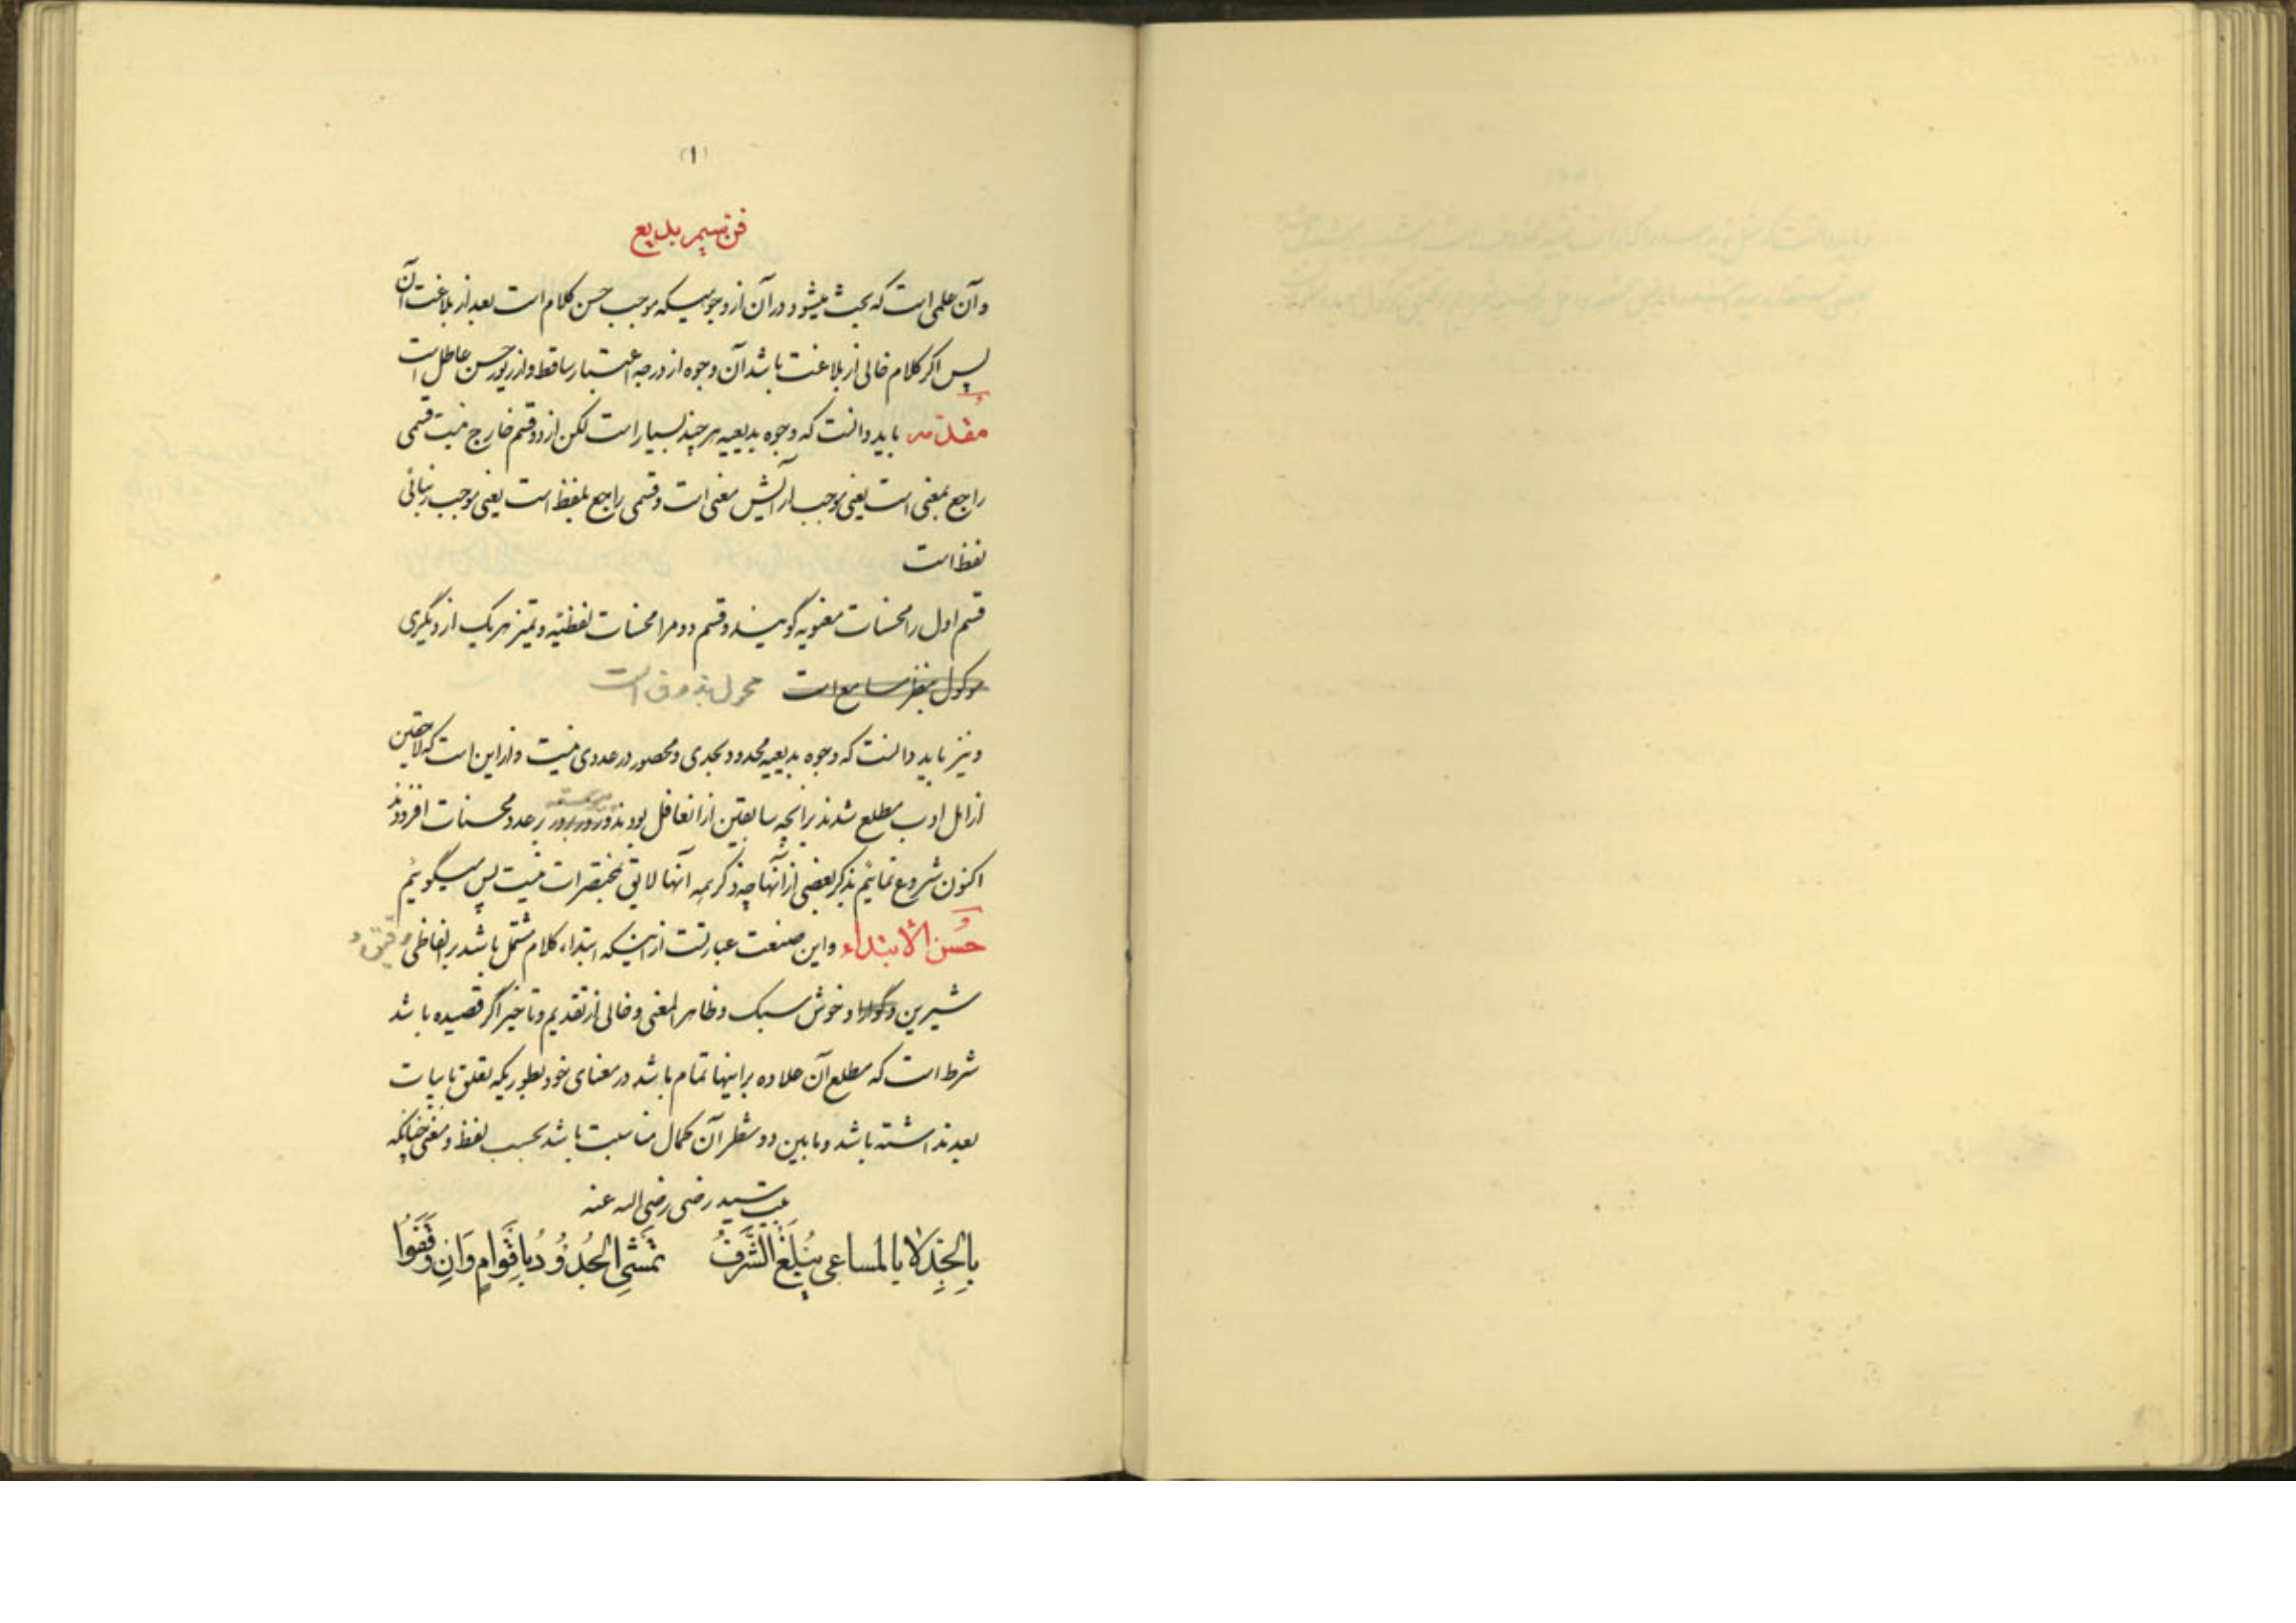 (۱)
فن سیم بدیع
وآن علمی است که بحث میشود در آن از وجوهیکه موجب حسن کلام است بعد از بلاغت آن
پس اگر کلام خالی از بلاغت باشد آن وجوه از درجه اعتبار ساقط و از زیور حسن عاطل است
مقدّمه باید دانست که وجوه بدیعیه هر چند بسیار است لکن از دو قسم خارج نیست قسمی
راجع بمعنی است یعنی موجب آرایش معنی است و قسمی راجع بلفظ است یعنی موجب زیبائی
لفظ است
قسم اول را محسنات معنویه گویند و قسم دوم را محسنات لفظیّه و تمیز هر یک از دیگری
موکول بنظر سامع است محول بذوق است
و نیز باید دانست که وجوه بدیعیه محدود بحدی و محصور در عددی نیست و از این است که لاحقین
از اهل ادب مطلع شدند بر آنچه سابقین از آن غافل بودند و روز بروز بر عدد محسنات افزودند
اکنون شروع نمائیم بذکر بعضی از آنها چه ذکر همه آنها لایق مختصرات نیست پس میگوئیم
حُسن الابتداء و این صنعت عبارتست از اینکه ابتداء کلام مشتمل باشد بر الفاظی رقیق و
شیرین و گوارا و خوش سبک و ظاهر المعنی و خالی از تقدیم و تاخیر اگر قصیده باشد
شرط است که مطلع آن علاوه بر اینها تمام باشد در معنای خود بطوریکه تعلق بابیات
بعد نداشته باشد و مابین دو شطر آن کمال مناسبت باشد بحسب لفظ و معنی چنانکه
سید رضی رضی الله عنه
بِالجِدِّ لا بِالمساعی یُبلَغُ الشَّرَفُ تَمشِی الجُدُودُ بِاَقوامٍ وَاِن وَقَفُوا